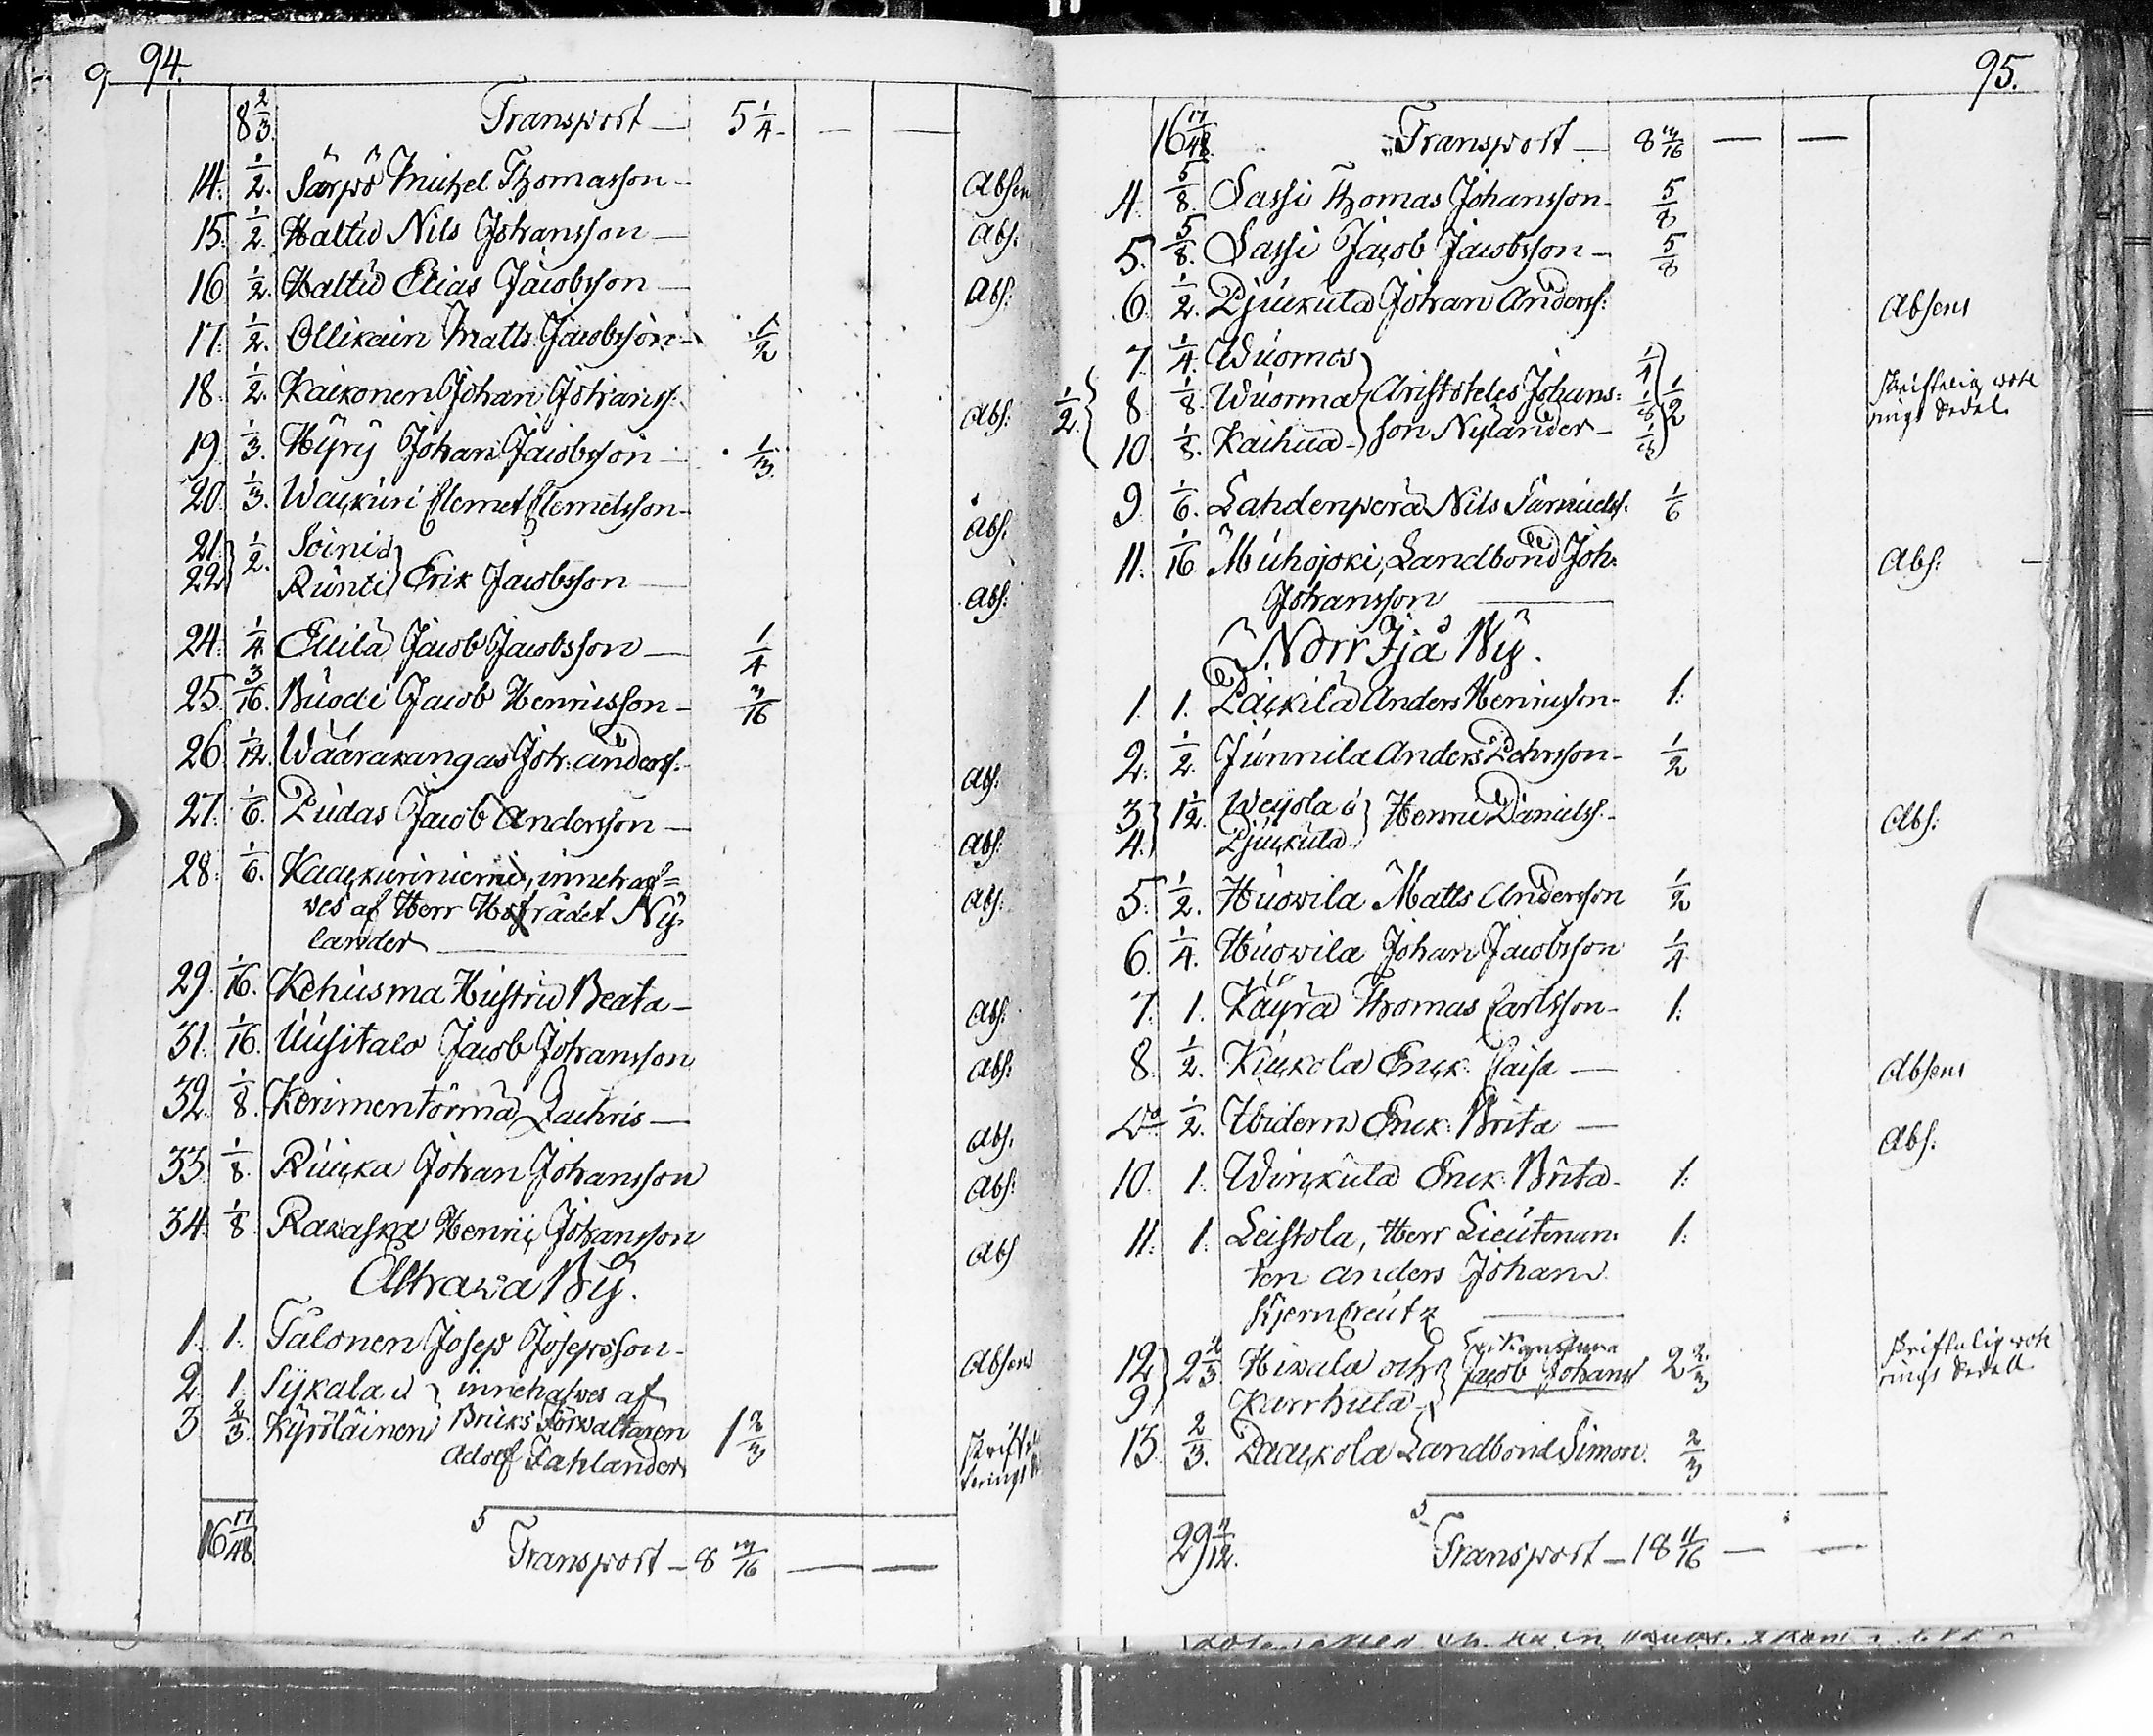 94.
8 2/3. Transport — 5 1/4. — —
14. 1/2. Särpö Michel Thomasson — Absen
15. 1/2. Haltu Nils Johansson — Abs:
16 1/2. Haltu Elias Jacobsson — Abs:
17. 1/2. Ollikain Matts Jacobsson — 1/2
18. 1/2. Kaikonen Johan Johanss: Abs:
19. 1/3. Hyry Johan Jacobsson — 1/3
20. 1/3. Wackuri Clemet Clemetsson — Abs.
21. 1/2. Soini
22. Runti Erik Jacobsson — Abs:
24. 1/4 Ellilä Jacob Jacobsson — 1/4
25. 3/16. Buodi Jacob Henricsson — 3/16
26. 1/12. Wäärakangas Joh: Anderss: Abs:
27. 1/6. Pudas Jacob Andersson — Abs:
28. 1/6. Kaackuriniemi, innehaf= Abs:
ves af Herr Hofrådet Ny-
lander
29. 1/16. Kehusma Hustru Beata — Abs:
31. 1/16. Uusitalo Jacob Johansson Abs:
32. 1/8. Kerimentörmä Zachris — Abs.
33. 1/8. Ruicka Johan Johansson Abs:
34. 1/8. Henric Johansson Abs
By.
1. 1. Talonen Josep Josepsson — Absens
2. 1. Sykala innehafwes af
3 2/3. Kyröläinen Bruks Förwaltaren 1 2/3
Adolf Fahlander
16 17/48. Transport — 8 3/16 — —
95.
16 17/48. Transport — 8 3/16 — —
4. 5/8. Sassi Thomas Johansson — 5/8
5. 5/8. Sassi Jacob Jacobsson — 5/8
6. 1/2. Pjuckula Johan Anderss: Absens
7. 1/4. Wuomas 1/4
1/2. 8. 1/8. Wuorma Aristoteles Johans: 1/8 1/2 skriftelig wote
10. 1/8. Kaihua son Nylander — 1/8 rings Sedel.
9 1/6. Lahdenperä Nils Samuelss. 1/6
11. 1/16. Muhojoki, Landbond Joh: Abs:
Johansson
Norr Ijå By.
1. 1. Päckilä Anders Henricsson — 1.
2. 1/2. Junnila Anders Pehrsson — 1/2
3. 1 1/2. Weijola o Henric Danielss. — Abs:
4. Pjuckula
5. 1/2. Huovila Matts Andersson 1/2
6. 1/4. Huovila Johan Jacobsson 1/4
7. 1. Käyrä Thomas Carlsson — 1.
8. 1/2. Kuckola Enck: Caisa — Absens
Do 1/2. Ibidem Enck: Brita — Abs:
10. 1. Wirckula Enck: Brita — 1.
11. 1. Leistola, Herr Lieutenan= 1.
ten Anders Johan
Stjerncreutz
12 2 2/3 Hiwala och Jacob Johans 2 2/3 skriftelig wote
9 Karrhula rings Sedell
13. 2/3. Paackola Landbond Simon. 2/3
29 11/12. Transport — 18 11/16 — —